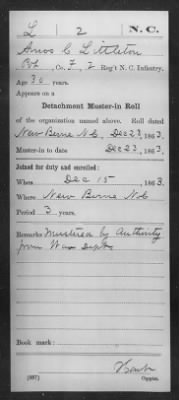 L 2 N.C.
Amos C Littleton
Co. F, 2 Reg't N. C. Infantry.
Age 30 years.
Appears on a
Detachment Muster-in Roll
of the organization named above. Roll dated
New Berne N.C., Dec 23, 1863.
Muster-in to date Dec 23, 1863.
Joined for duty and enrolled:
When Dec 15, 1863.
Where New Berne N.C.
Period 3 years.
Remarks Mustered by Authority
from War Dept
Book mark:
(357) Copyist.